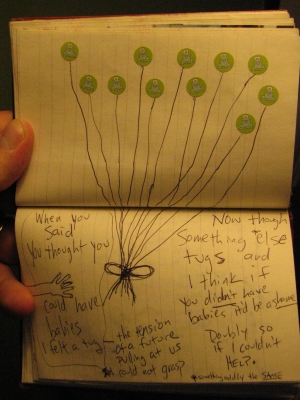 When you
Said
You thought you
could have
babies
I felt a tug — the tension
of a future
pulling at us
could not grasp?
Now though
Something else
tugs and
I think if
you didn't have
babies, it'd be a shame
Doubly so
if I couldn't
HELP.
something oddly the SAME